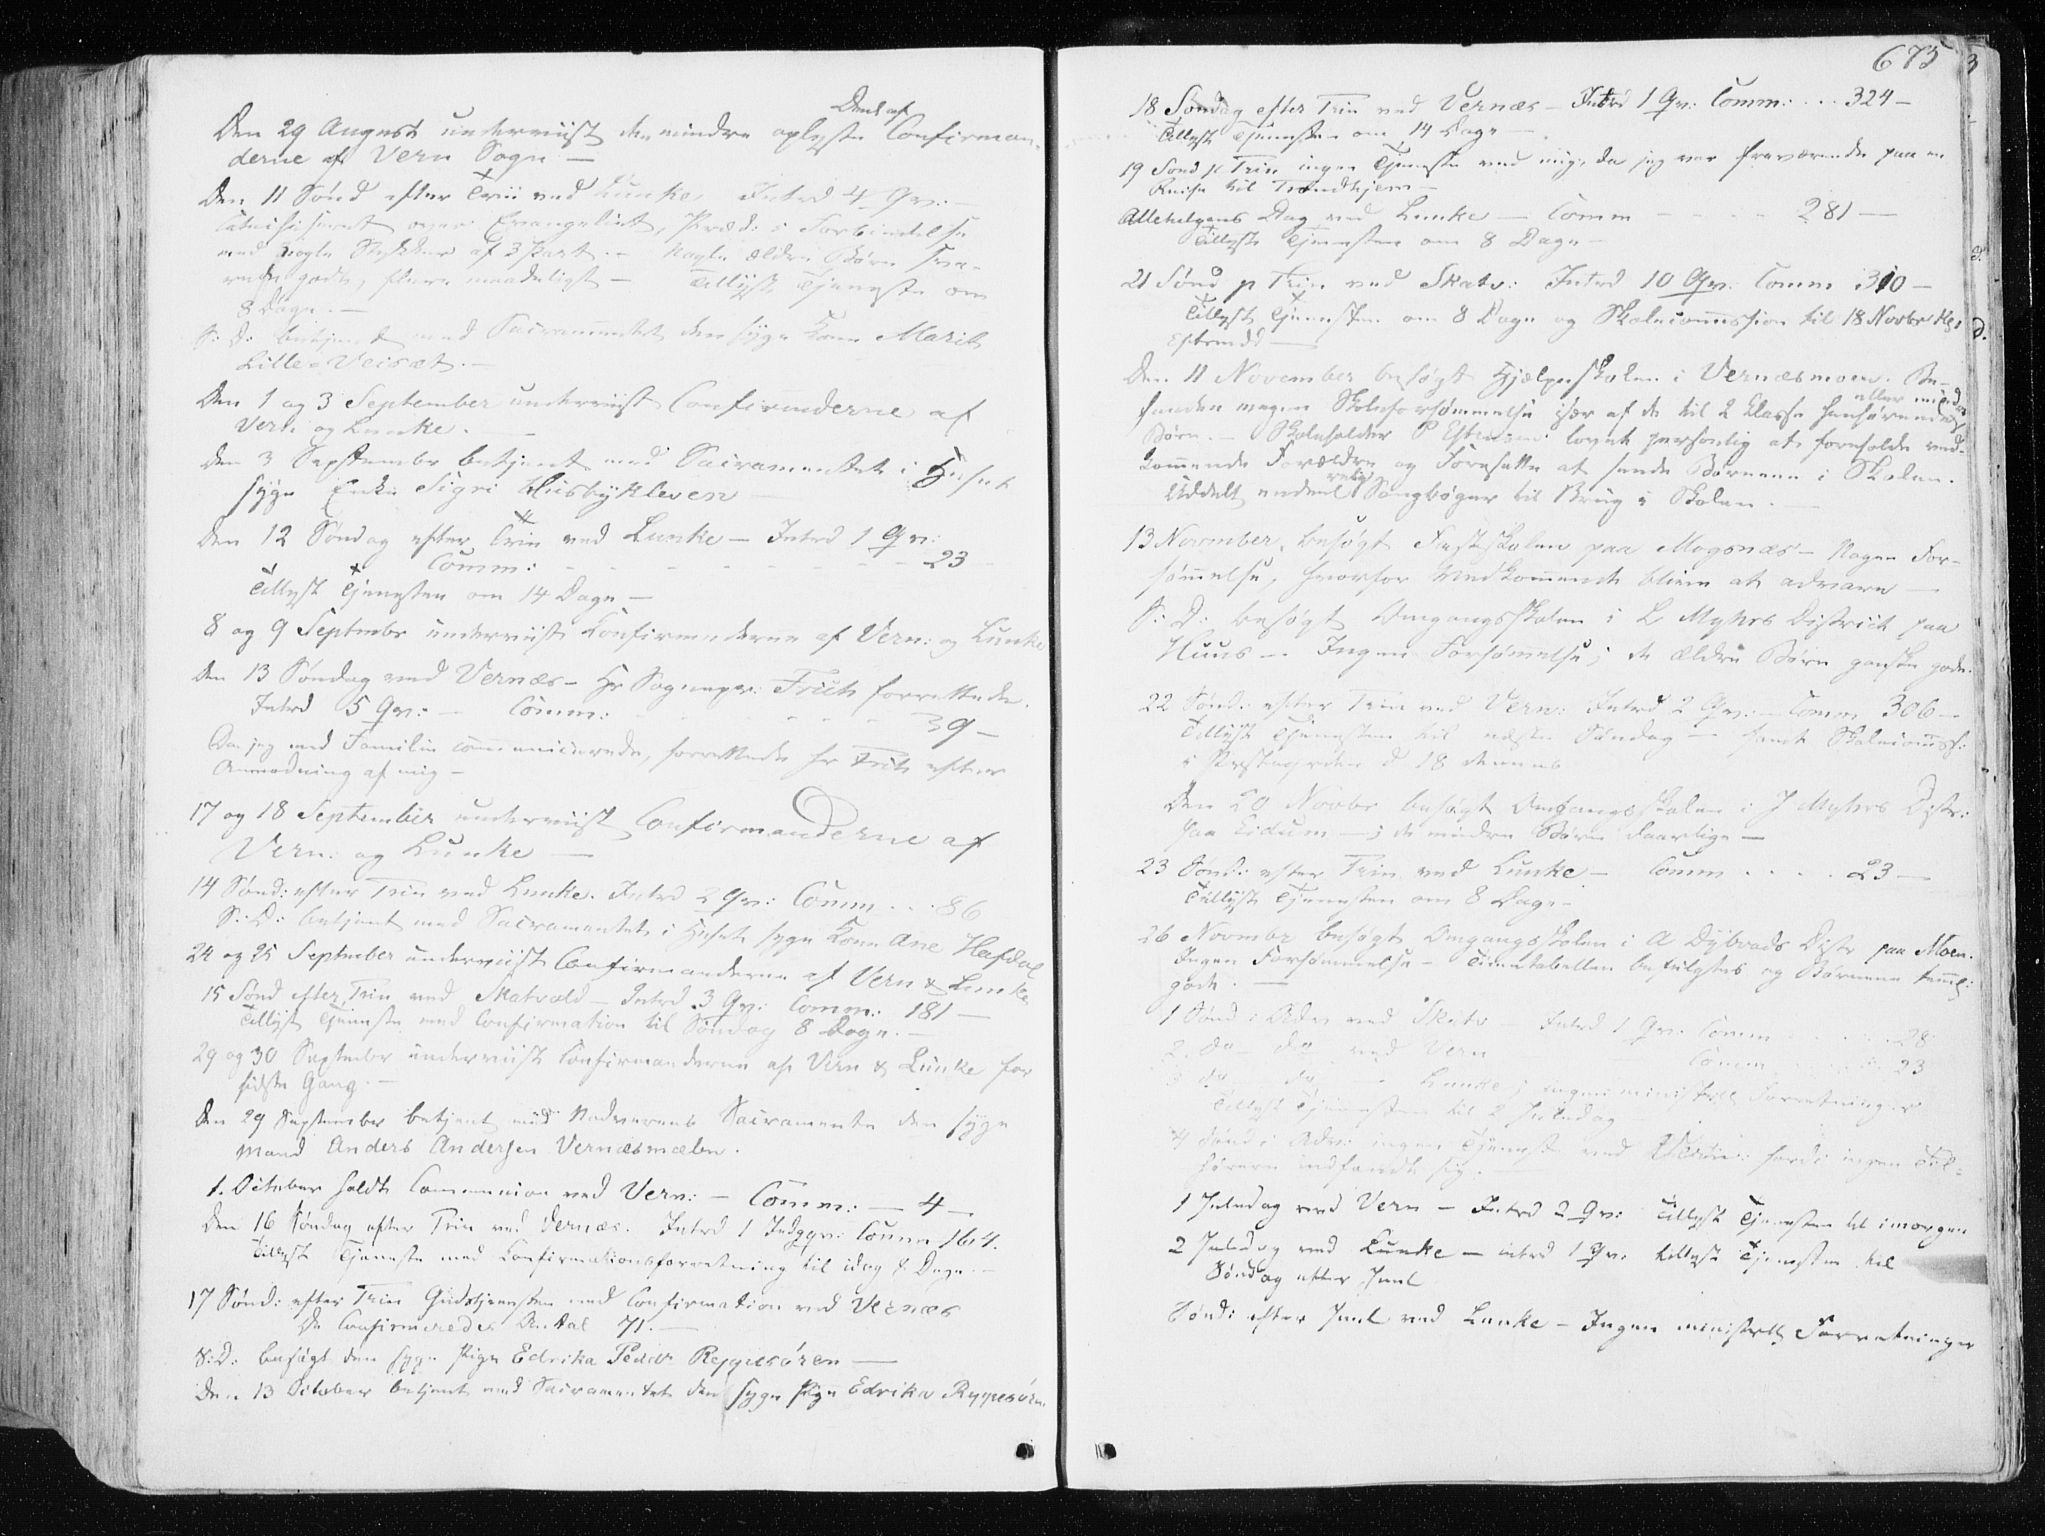 Deel af
Den 29 August underviist de mindre oplyste Confirman-
derne af Vern Sogn —
Den 11 Sønd efter Trin ved Lunke, Introd 4 Qv: —
Catechiseret over Evangeliet, Præd: i Forbindelse
med nogle Stykker af 3 Part. — Nogle ældre Børn sva-
rede godt, flere maadeligt — Tillyst Tjeneste om
8 Dage. —
S: D: betjent med Sacramentet den syge Kone Marit
Lille-Veiset. —
Den 1 og 3 September underviist Confirmderne af
Vern og Lunke. —
Den 3 Septembr betjent med Sacramentet i Huset
syge Enke Sigri Husbykleven —
Den 12 Søndag efter Trin ved Lunke — Introd 1 Qv:
Comm: - - - - - - - - 23
Tillyst Tjenesten om 14 Dage —
8 og 9 Septembr underviist Confirmanderne af Vern: og Lunke
Den 13 Søndag ved Vernæs — Hr Sognepr: Frich forrettede.
Introd 5 Qv: — Comm: - - - - - 39 —
Da jeg med Familie communicerede, forrettede Hr Frich efter
Anmodning af mig —
17 og 18 September underviist Confirmanderne af
Vern: og Lunke —
14 Sønd: efter Trin ved Lunke. Introd 2 Qv: Comm . . . 86
S: D: betjent med Sacramentet i Huset syge Kone Ane Hafdal
24 og 25 September underviist Confirmanderne af Vern & Lunke
15 Sønd efter Trin ved Skatvold — Introd 3 Qv: Comm: 181 —
Tillyst Tjeneste med Confirmation til Søndag 8 Dage. —
29 og 30 Septembr underviist Confirmanderne af Vern & Lunke for
sidste Gang. —
Den 29 September betjent med Nadverens Sacramente den syge
Mand Anders Andersen Vernæsmælen.
1. October holdt Communion ved Vern: — Comm: — 4 —
Den 16 Søndag efter Trin ved Vernæs. Introd 1 Comm 164.
Tillyst Tjeneste med Confirmationsforretning til idag 8 Dage —
17 Sønd: efter Trin Gudstjeneste med Confirmation ved Vernæs
De Confirmeredes Antal 71. —
S: D: besøgt den syge Pige Edrika Reppesøren —
Den 13 October betjent med Sacramentet den syge Pige Edrika Reppesøren
675
18 Søndag efter Trin ved Vernæs — Introd 1 Qv: Comm: . . . 324 —
Tillyst Tjeneste om 14 Dage —
19 Sønd p Trin ingen Tjeneste ved mig, da jeg var fraværende paa en
Reise til Trondhjem —
Allehelgens Dag ved Lunke — Comm - - - - 281 —
Tillyst Tjenesten om 8 Dage —
21 Sønd p Trin ved Skatv: Introd 10 Qv: Comm 310 —
Tillyst Tjenesten om 8 Dage og Skolecommission til 18 Novbr
Eftermdd —
Den 11 November besøgt Hjælpeskolen i Vernæsmoen. Be-
fandtes megen Skoleforsømmelse især af de til 2 Classe henhørende
eller mindre
Børn. — Skoleholder P Estensen lovet personlig at foreholde ved-
kommende Forældre og Foresatte at sende Børnene i Skolen.
Uddelt endeel Sangbøger til Brug i Skolen. —
13 November, besøgt Fastskolen paa Mogsnæs — Nogen For-
sømmelse, hvorfor Vedkommende blive at advare —
S: D: besøgt Omgangsskolen i L Myhrs District paa
Huus — Ingen Forsømmelse; de ældre Børn ganske gode.
22 Sønd: efter Trin ved Vern: Introd 2 Qv: — Comm 306 —
Tillyst Tjenesten til næste Søndag — samt Skolecommiss:
i Præstegaarden d 18 dennes
Den 20 Novbr besøgt Omgangsskolen i J Myhrs Distr:
paa Eidum — ; de mindre Børn daarlige —
23 Sønd: efter Trin ved Lunke — Comm . . . . 23 —
Tillyst Tjenesten om 8 Dage —
26 Novembr besøgt Omgangsskolen i A Dybvads Distr paa Moen.
Ingen Forsømmelse — Timetabellen befulgtes og Børnene temel:
gode. —
1 Sønd i Adv ved Skatv — Introd 1 Qv: Comm . . . . . 28
2 do do ved Vern Comm . . . . . 23
3 do do — Lunke; ingen ministrll Forretninger
Tillyst Tjenesten til 2 Juledag
4 Sønd i Adv: ingen Tjeneste ved fordi ingen Til-
hørere indfandt sig. —
1 Juledag ved Vern — Introd 2 Qv: Tillyst Tjenesten til imorgen
2 Juledag ved Lunke — introd 1 Qv: tillyst Tjenesten til
Søndag efter Juul
Sønd: efter Juul ved Lunke — Ingen ministrll Forretninger